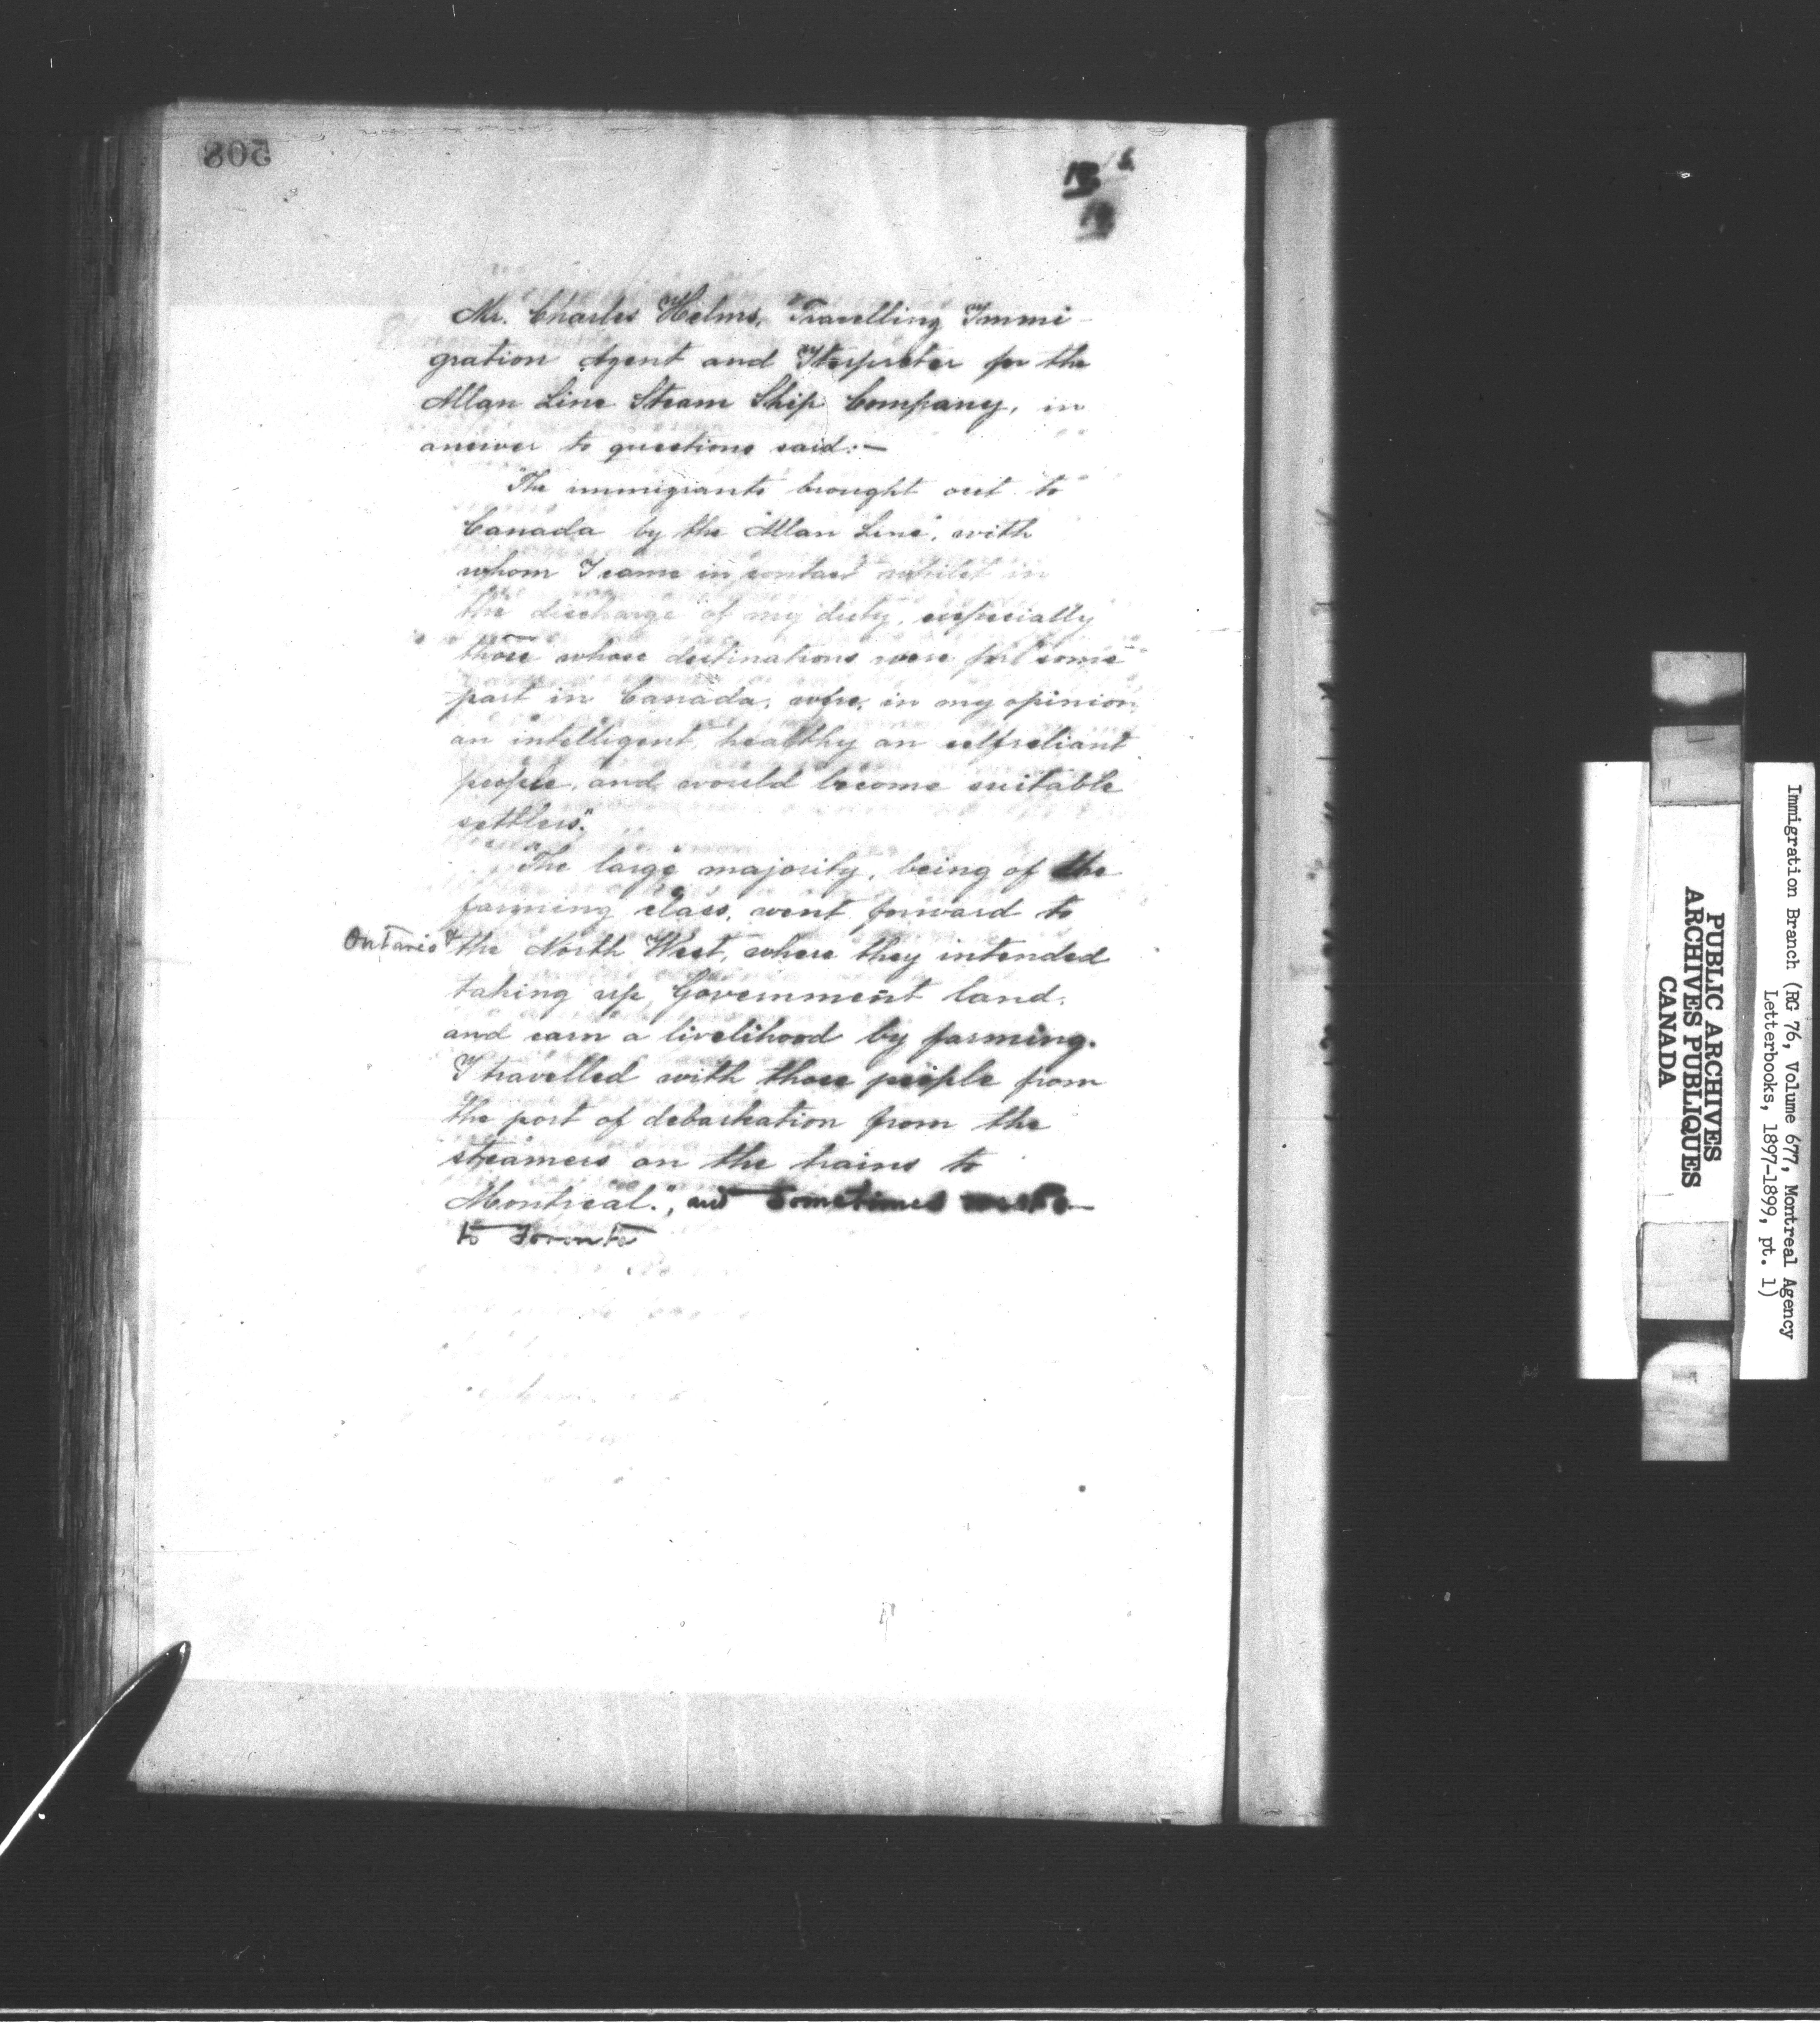 508
Mr. Charles Helms, Travelling Immi-
gration Agent and Iterpreter for the
Allan Line Steam Ship Company, in
answer to questions said:—
"The immigrants brought out to
Canada by the "Allan Line", with
whom I came in contact whilst in
the discharge of my duty, especially
those whose destinations were for some
part in Canada, were, in my opinion,
an intelligent, healthy an selfreliant
people, and would become suitable
settlers."
"The large majority, being of the
farming class, went forward to
Ontario & the North West, where they intended
taking up Government land,
and earn a livelihood by farming.
I travelled with those people from
the port of debarkation from the
steamers on the trains to
Montreal.", and Sometimes
to Toronto
Immigration Branch (RG 76, Volume 677, Montreal Agency
Letterbooks, 1897-1899, pt. 1)
PUBLIC ARCHIVES
ARCHIVES PUBLIQUES
CANADA